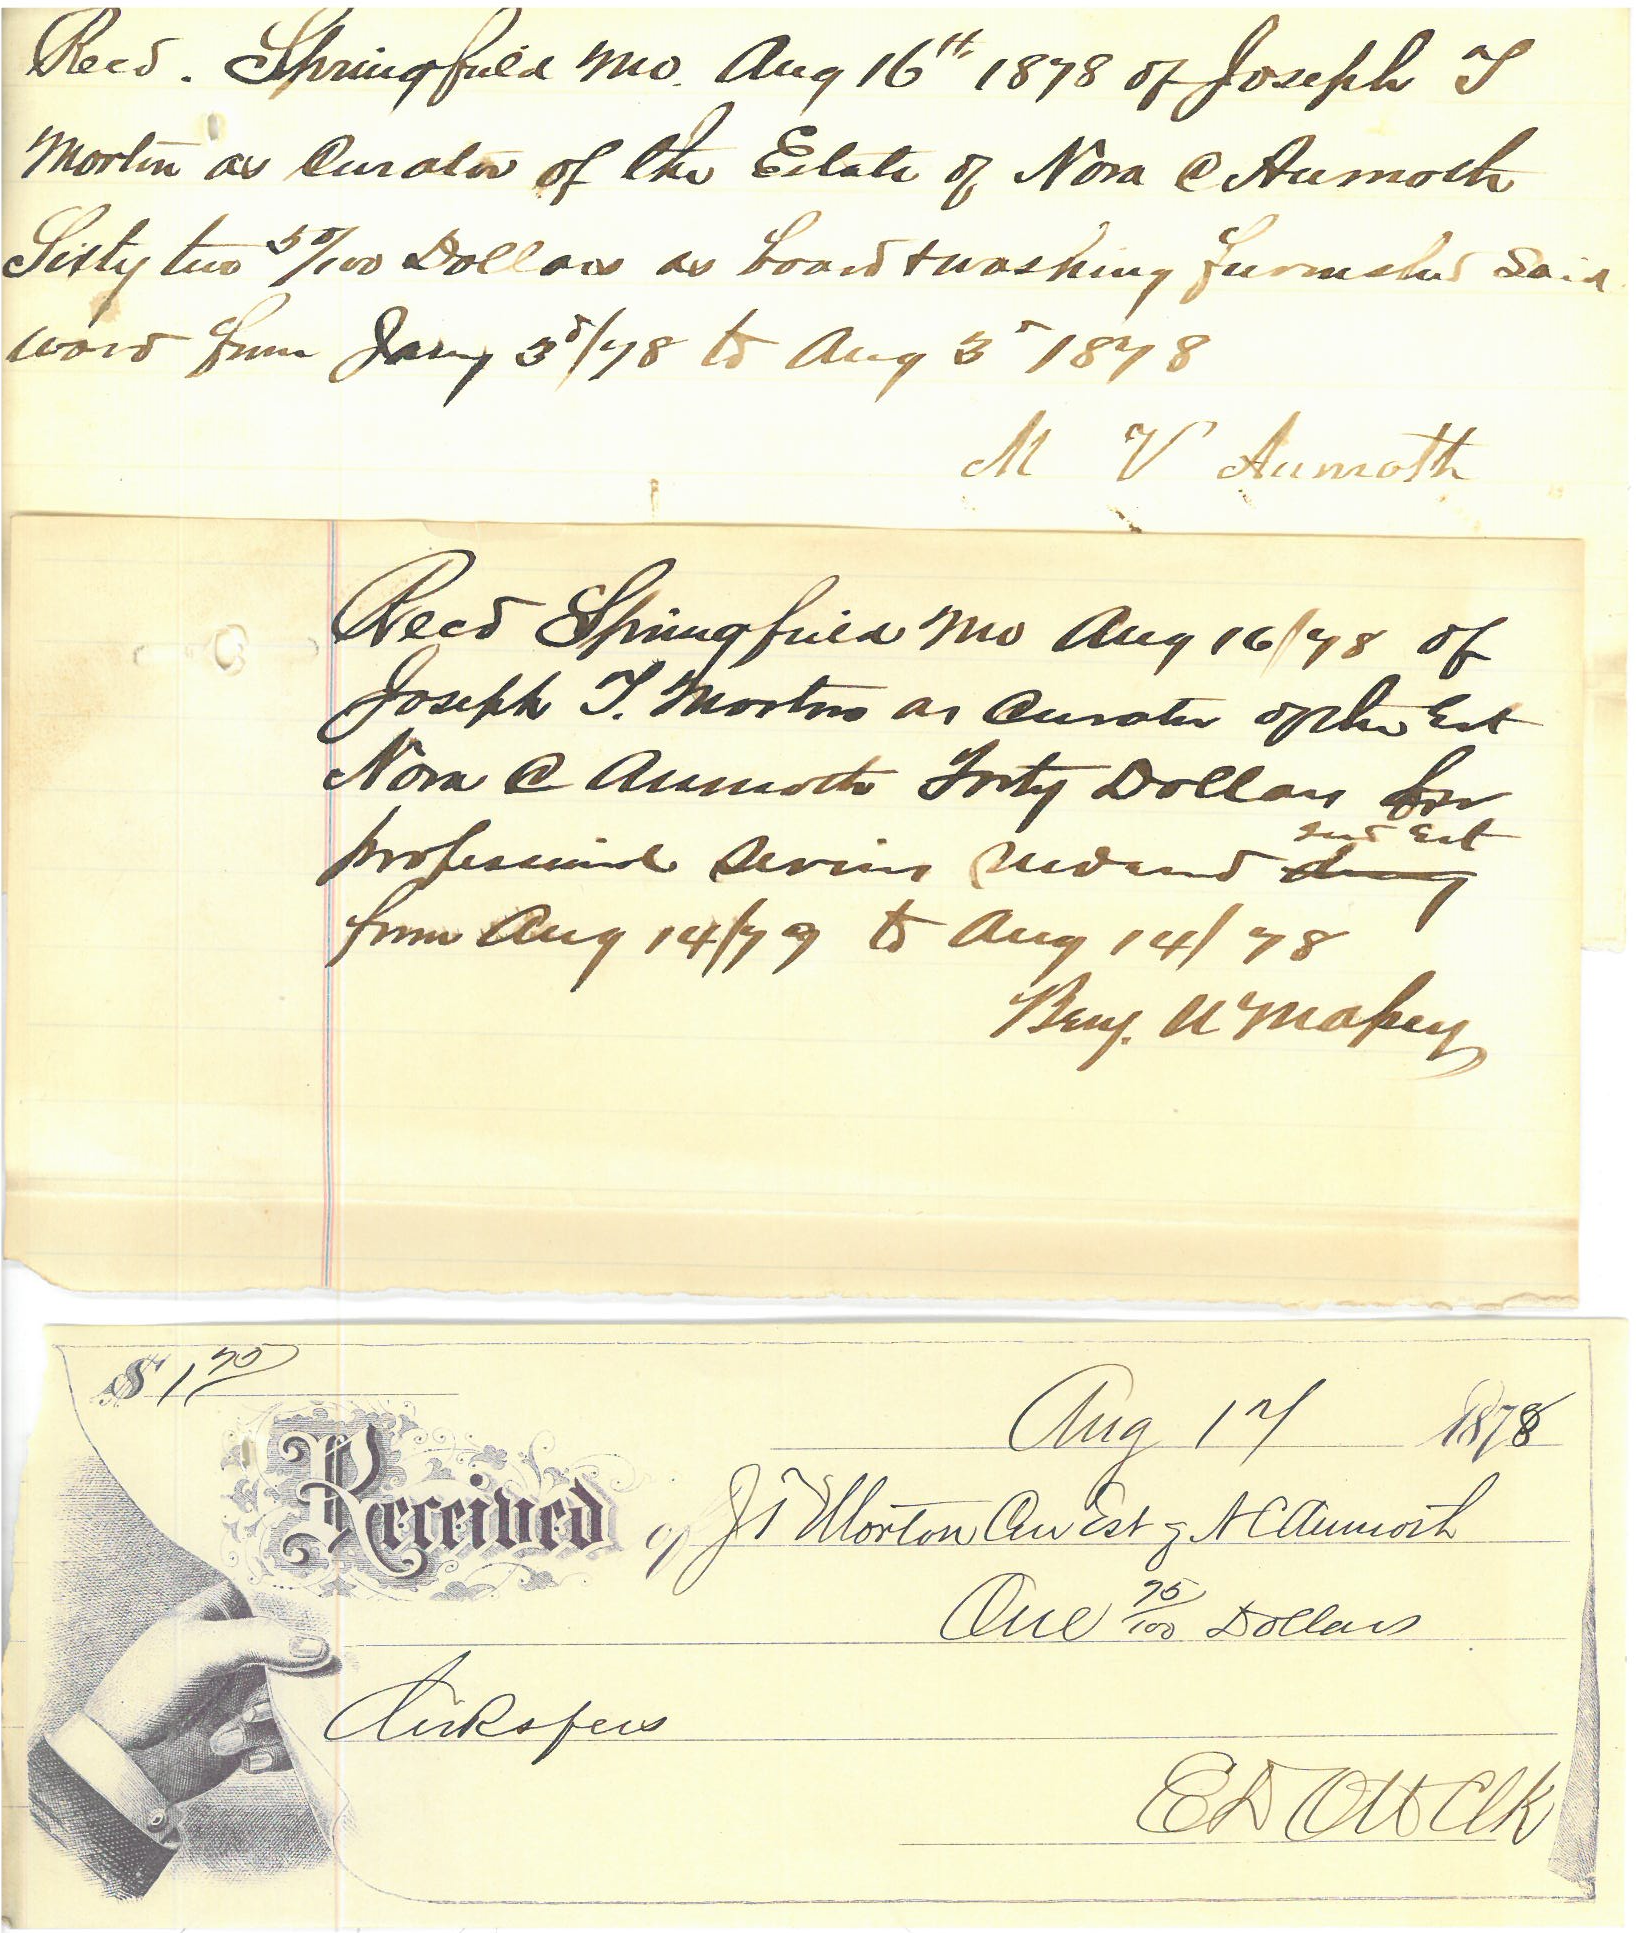 Recd. Springfield Mo. Aug 16th 1878 of Joseph T
Morton as Curator of the Estate of Nora C Aumoth
Sixty two 50/100 Dollars as board & washing furnished Said
ward from Jany 3d/78 to Aug 3d 1878
M V Aumoth
Recd Springfield Mo Aug 16/78 of
Joseph T. Morton as Curator of the Est
Nora C Aumoth Forty Dollars for
said Est
professional Services rendered
from Aug 14/77 to Aug 14/78
Benj. U Massey
$ 1 75
Aug 17 1878
Received of J T Morton Cur Est of N C Aumoth
One 75/100 Dollars
Clerks fees
E D Ott Clk